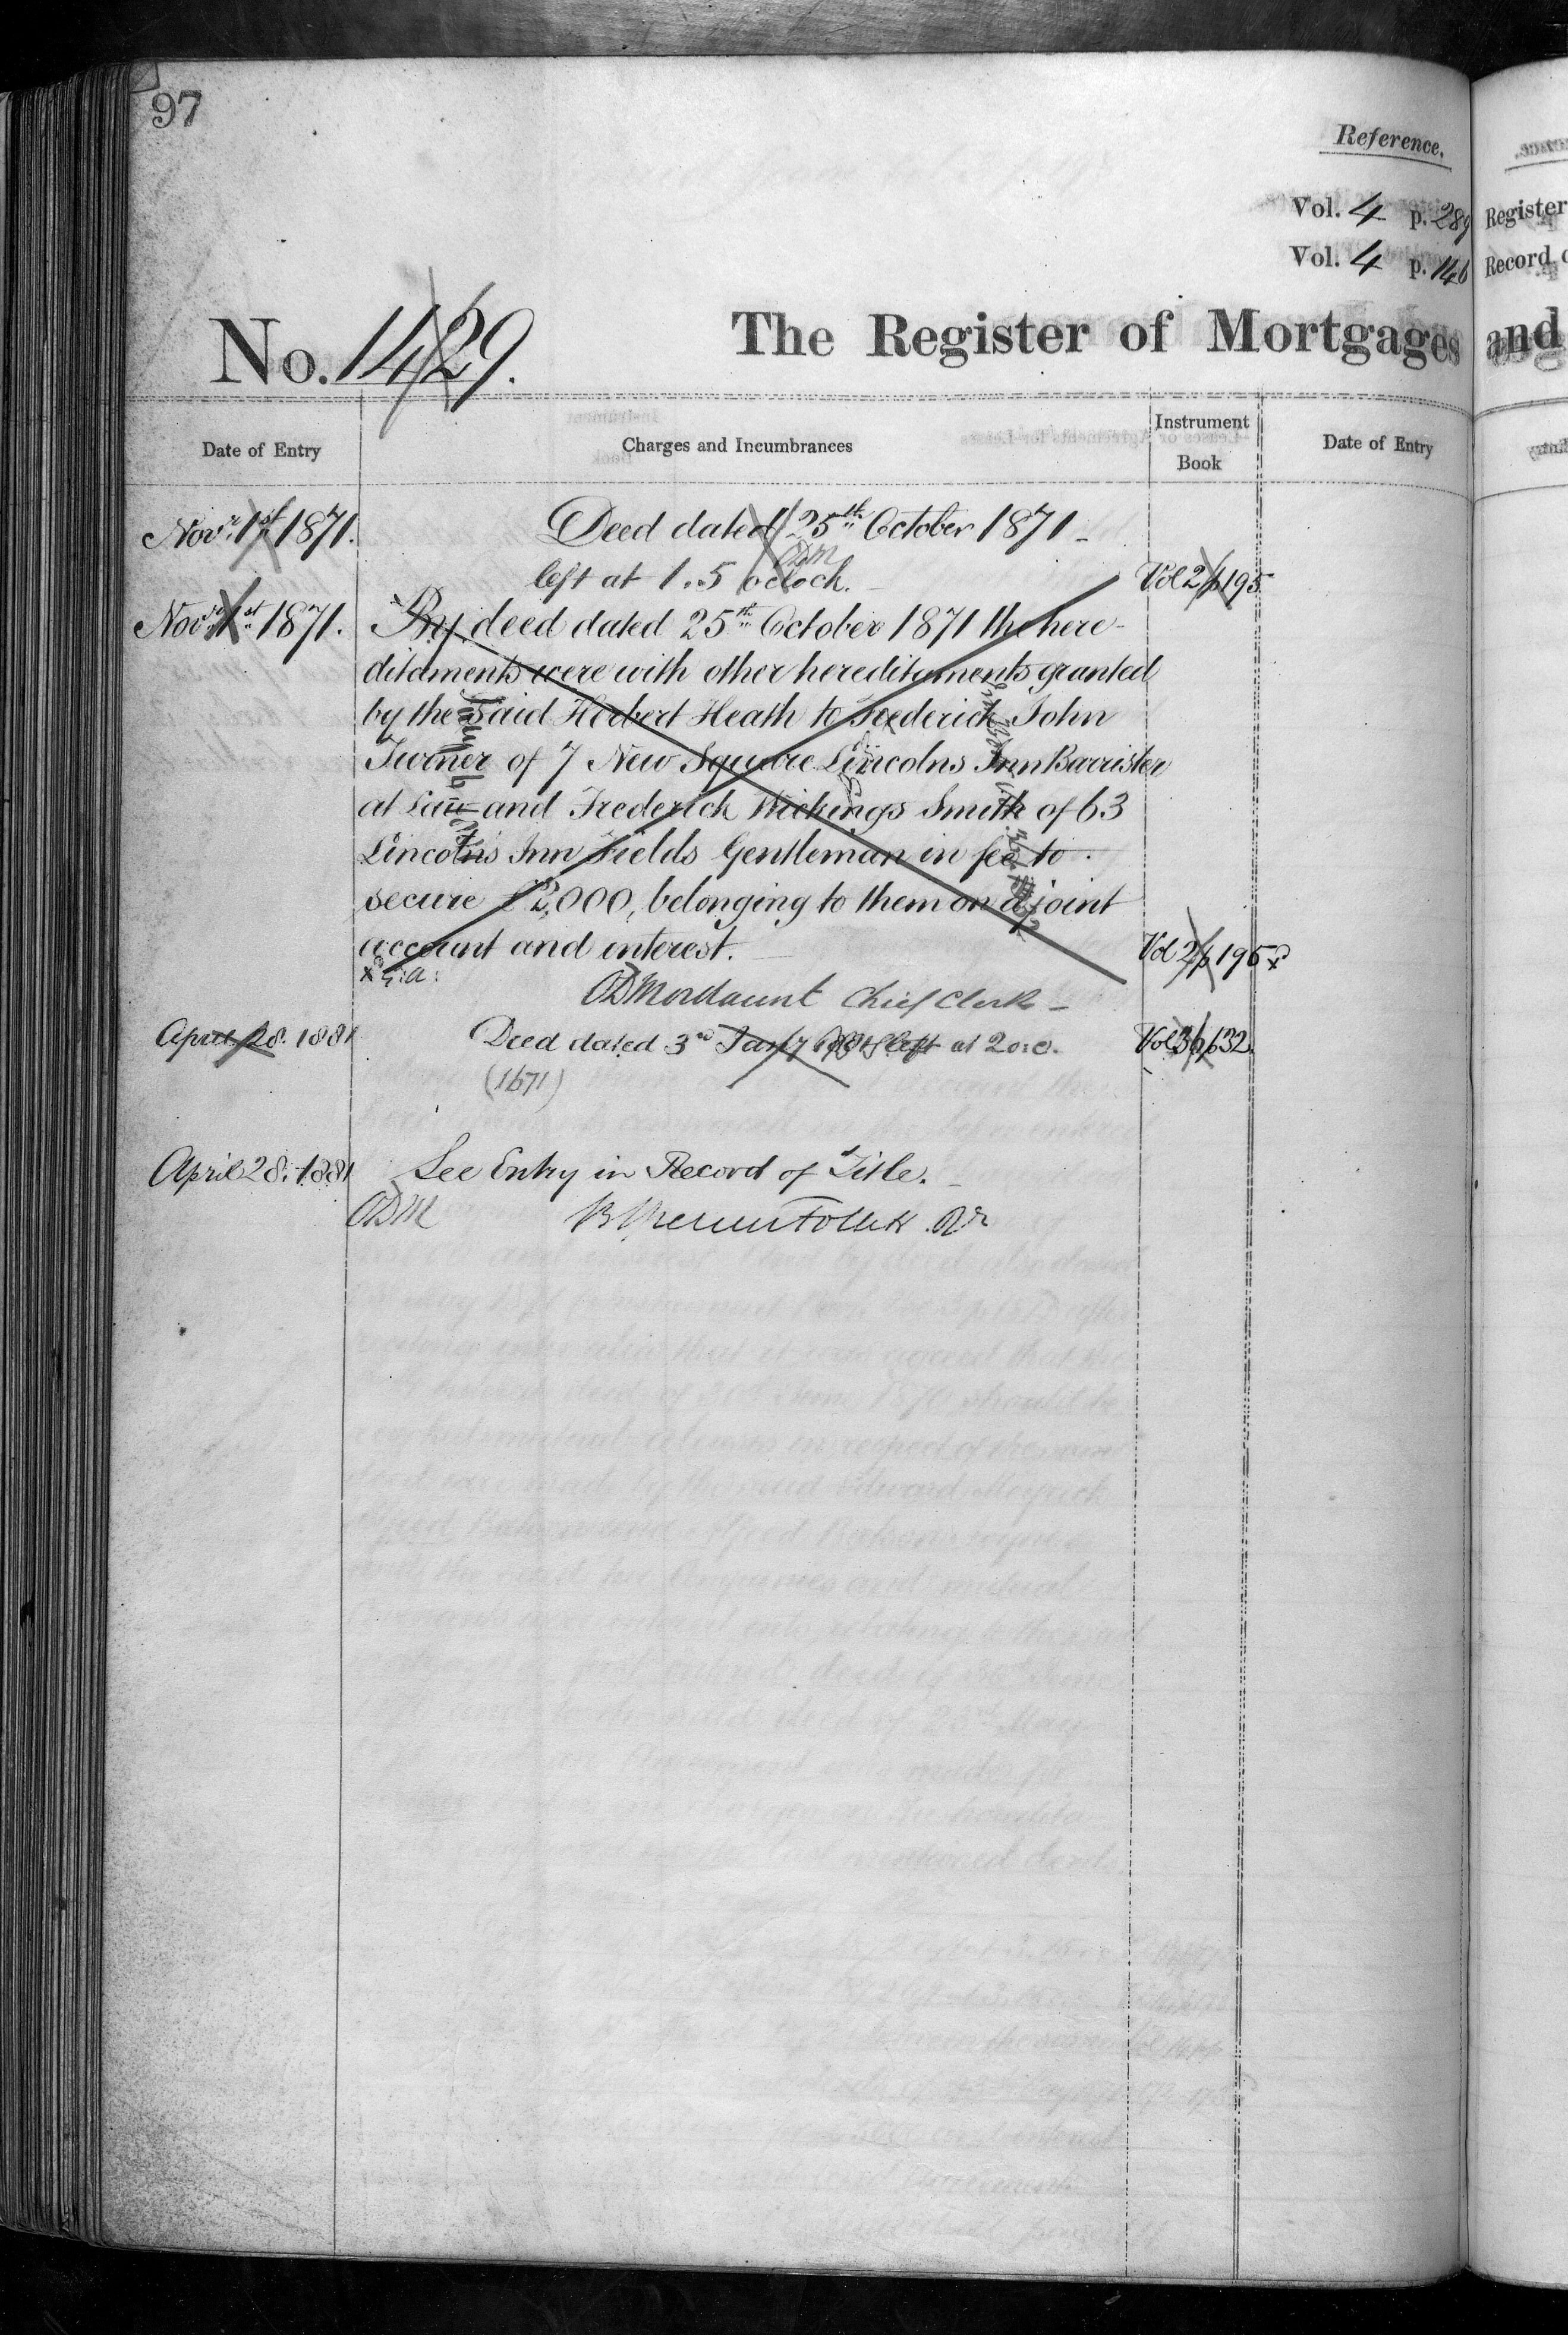 97
Reference.
Vol. 4 p. 289
Register
Vol. 4 p. 146
Record
No. 1429.
The Register of Mortgages and
Date of Entry
Charges and Incumbrances
Instrument
Book
Date of Entry
Novr. 1st 1871.
Deed dated 25th October 1871
ODM
left at 1.5 oclock.
Vol 2 p 195
Novr. 1st 1871.
By deed dated 25th October 1871 the here-
ditaments were with other hereditaments granted
by the said Herbert Heath to Frederick John
Turner of 7 New Square Lincolns Inn Barrister
at Law and Frederick Wickings Smith of 63
Lincoln's Inn Fields Gentleman in fee to
secure £2,000, belonging to them on a joint
account and interest.
Vol 2 p 195
ODMordaunt Chief Clerk
April 28. 1881
Deed dated 3rd Jany 1881 left at 2 o.c.
Vol 36 p 632
(1671)
April 28. 1881
See Entry in Record of Title.
ODM